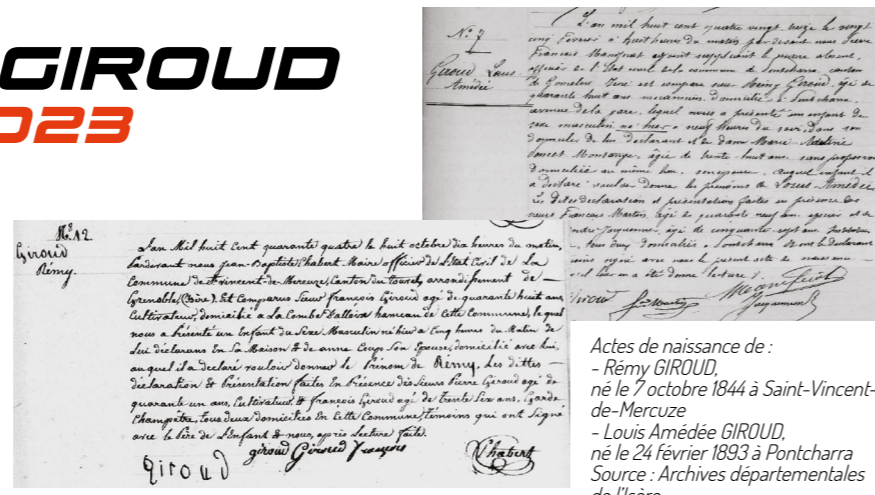 GIROUD
023
N.º 7
Giroud Louis
Amédée
L'an mil huit cent quatre vingt treize le vingt
cinq Février à huit heures du matin par devant nous Pierre
François Manquat adjoint remplissant le maire absent,
officier de l'Etat civil de la commune de Pontcharra, canton
de Goncelin Isère est comparu sieur Rémy Giroud, âgé de
quarante huit ans mécanicien, domicilié à Pontcharra
avenue de la gare, lequel nous a présenté un enfant de
sexe masculin né hier à neuf heures du soir, dans son
domicile de lui déclarant et de dame Marie
âgée de trente huit ans, sans profession
domiciliée au même lieu, son épouse, auquel enfant il
a déclaré vouloir donner les prénoms de Louis Amédée
Les dites déclaration et présentation faites en présence des
sieurs François Martin, âgé de quarante neuf ans, épicier et de
Jacquemon, âgé de cinquante sept ans
tous deux domiciliés à Pontcharra et ont le déclarant
signé avec nous le présent acte de naissance
leur en a été donné lecture.
Giroud
N.º 12
Giroud
Rémy.
L'an Mil huit Cent quarante quatre le huit octobre dix heures du matin,
Pardevant nous Jean-Baptiste Chabert Maire officier de l'Etat Civil de La
Commune de St vincent-de-Mercuze, Canton du touvet, arrondissement de
Grenoble, (Isère). Est Comparus Sieur françois Giroud agé de quarante huit ans
Cultivateur, domicilié à La Combe d'alloix hameau de Cette Commune, le quel
nous a Présenté un Enfant du Sexe Masculin né hier a Cinq heures du Matin de
Lui déclarans En Sa Maison & de anne Coup Son Epouse, domicilié avec lui,
au quel il a déclaré vouloir donner le Prénom de Rémy, Les dittes
déclaration & Présentation faites En Présence des Sieurs Pierre Giroud agé de
quarante un ans, Cultivateur, & françois Giroud agé de trente Six ans, Garde
Champêtre, tous deux domiciliés En Cette Commune, Témoins qui ont Signé
avec le Père de L'enfant & nous, après Lecture faite.
giroud Giroud François
Chabert
Giroud
Actes de naissance de :
- Rémy GIROUD,
né le 7 octobre 1844 à Saint-Vincent-
de-Mercuze
- Louis Amédée GIROUD,
né le 24 février 1893 à Pontcharra
Source : Archives départementales
de l'Isère